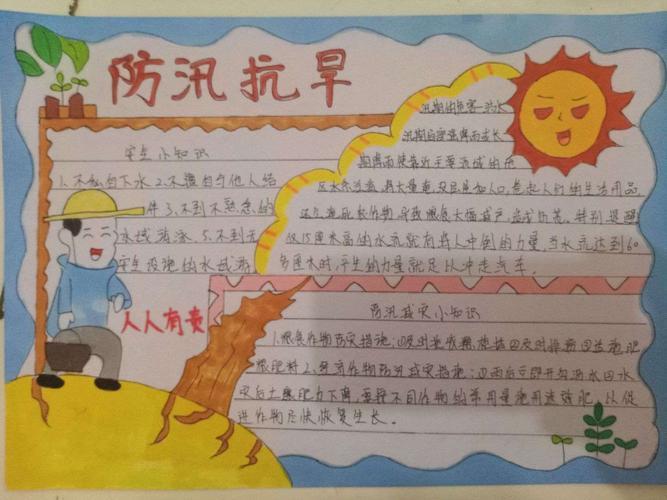 防汛抗旱
安全小知识
1.不私自下水2.不擅自与他人结
伴 3.不到不熟悉的
水域游泳.5.不到无
安全设施的水域游
汛期的危害—洪水
汛期因容集降雨成长
期降雨使靠近主要流域的地
区水水
人口,卷走人们的生活用品
还
农作物,导致粮食大幅减产,造成饥荒。特别提醒
仅15厘米高的水流就有将人冲倒的力量,当水流达到60
多厘米时,产生的力量就足以冲走汽车。
人人有责
防汛减灾小知识
1.粮食作物防灾措施:①及时
残棵,扶苗②及时排涝③
施肥
肥料2.经济作物防汛减灾措施:①雨后立即开沟沥水②水
灾后土壤肥力下离,要择不同作物的常用量施用速效肥,以促
进作物尽快恢复生长。